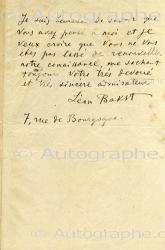 Je suis heureux de savoir que
Vous avez pensé à moi et je
veux croire que Vous ne Vous
êtes pas lassé de renouveler
notre connaissance, me sachant
toujours Votre très dévoué
et très sincère admirateur
Léon Bakst
7, rue de Bourgogne.
© Autographe